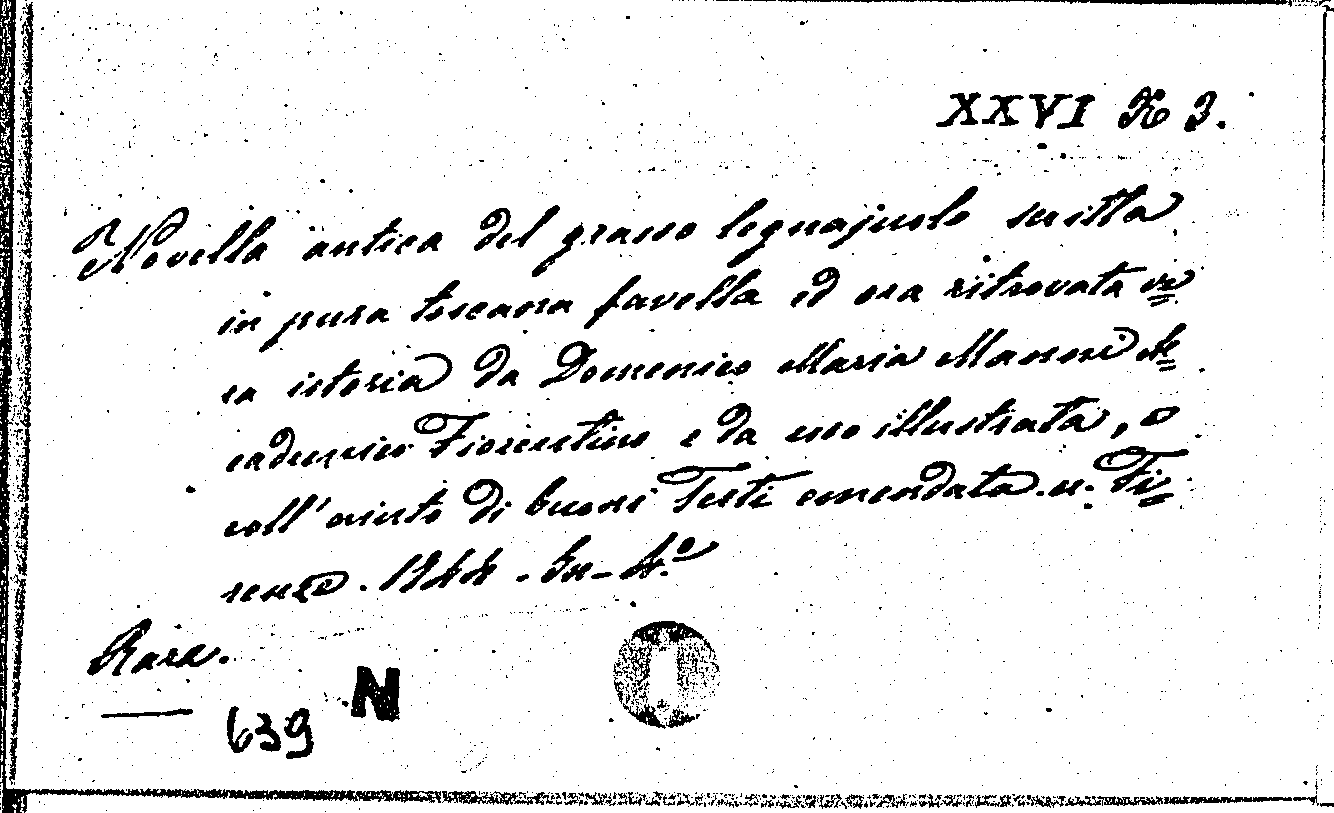 XXVI K 3.
Novella antica del grasso legnajuolo scritta
in pura toscana favella ed ora ritrovata ve=
ra istoria da Domenico Maria Manni Ac=
cademico Fiorentino e da esso illustrata, e
coll'aiuto di buoni Testi emendata. Fi=
renze. 1744. In-4.º
Rara.
639 N